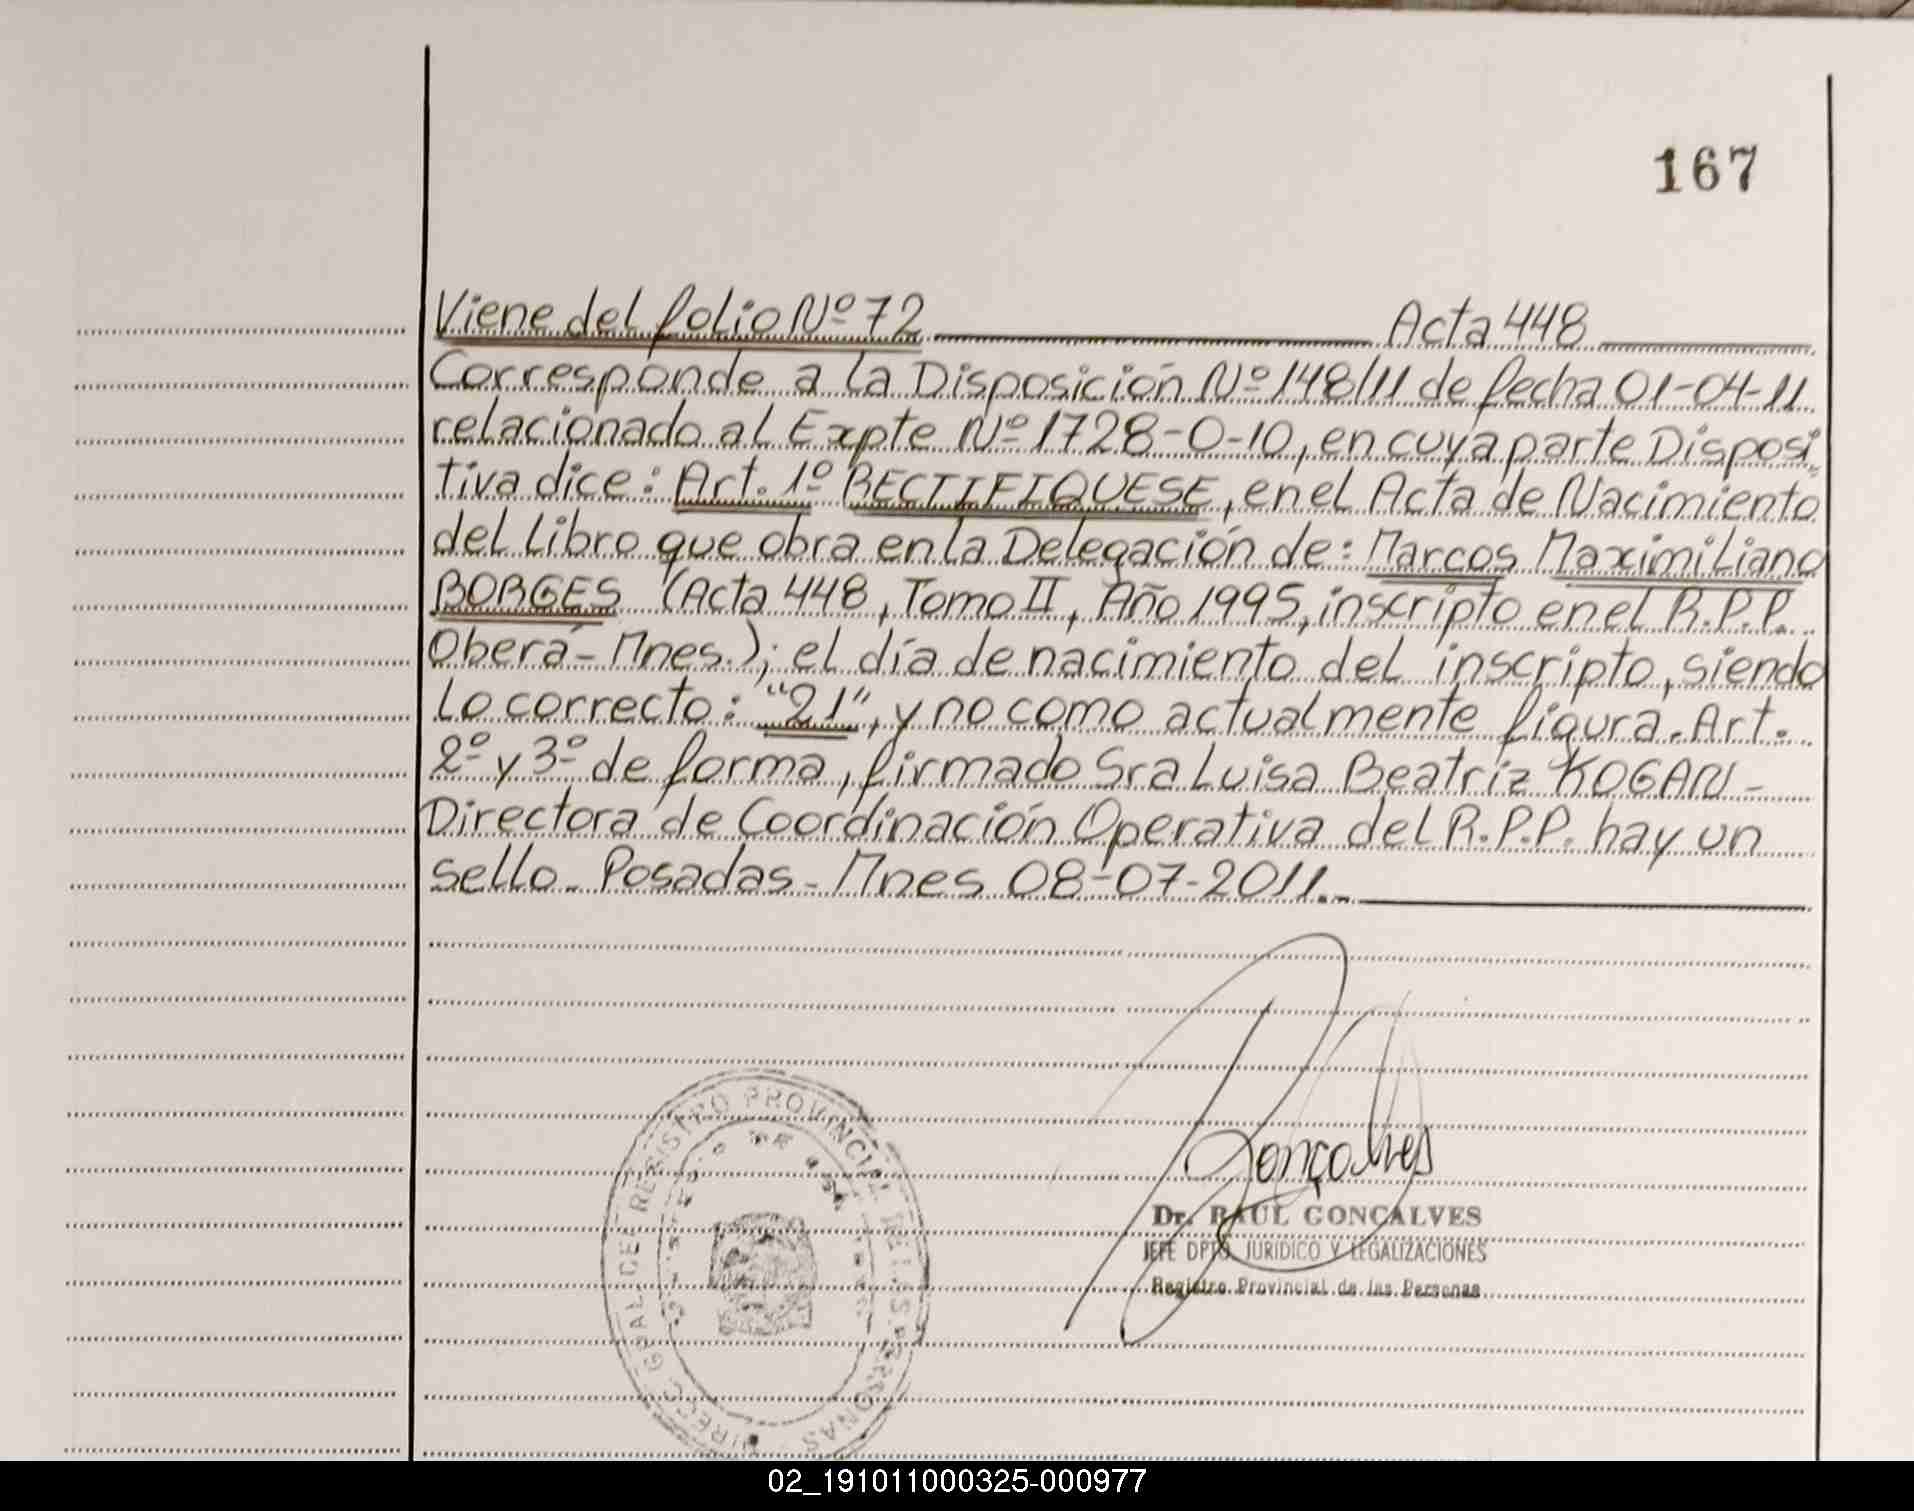 167
Viene del folio Nº 72 Acta 448
Corresponde a la Disposición Nº 148/11 de fecha 01-04-11
relacionado al Expte Nº 1728-0-10, en cuya parte Disposi
tiva dice: Art. 1º RECTIFIQUESE, en el Acta de Nacimiento
del libro que obra en la Delegación de: Marcos Maximiliano
BORGES (Acta 448, Tomo II, Año 1995, inscripto en el R.P.P.
Oberá - Mnes.); el día de nacimiento del inscripto, siendo
lo correcto: "21", y no como actualmente figura. Art.
2º y 3º de forma, firmado Sra Luisa Beatriz KOGAN -
Directora de Coordinación Operativa del R.P.P. hay un
sello. Posadas - Mnes 08-07-2011.-
Gonçalves
Dr. RAUL GONCALVES
JEFE DPTO. JURIDICO Y LEGALIZACIONES
Registro Provincial de las Personas
REGISTRO PROVINCIAL PERSONAS
02_191011000325-000977